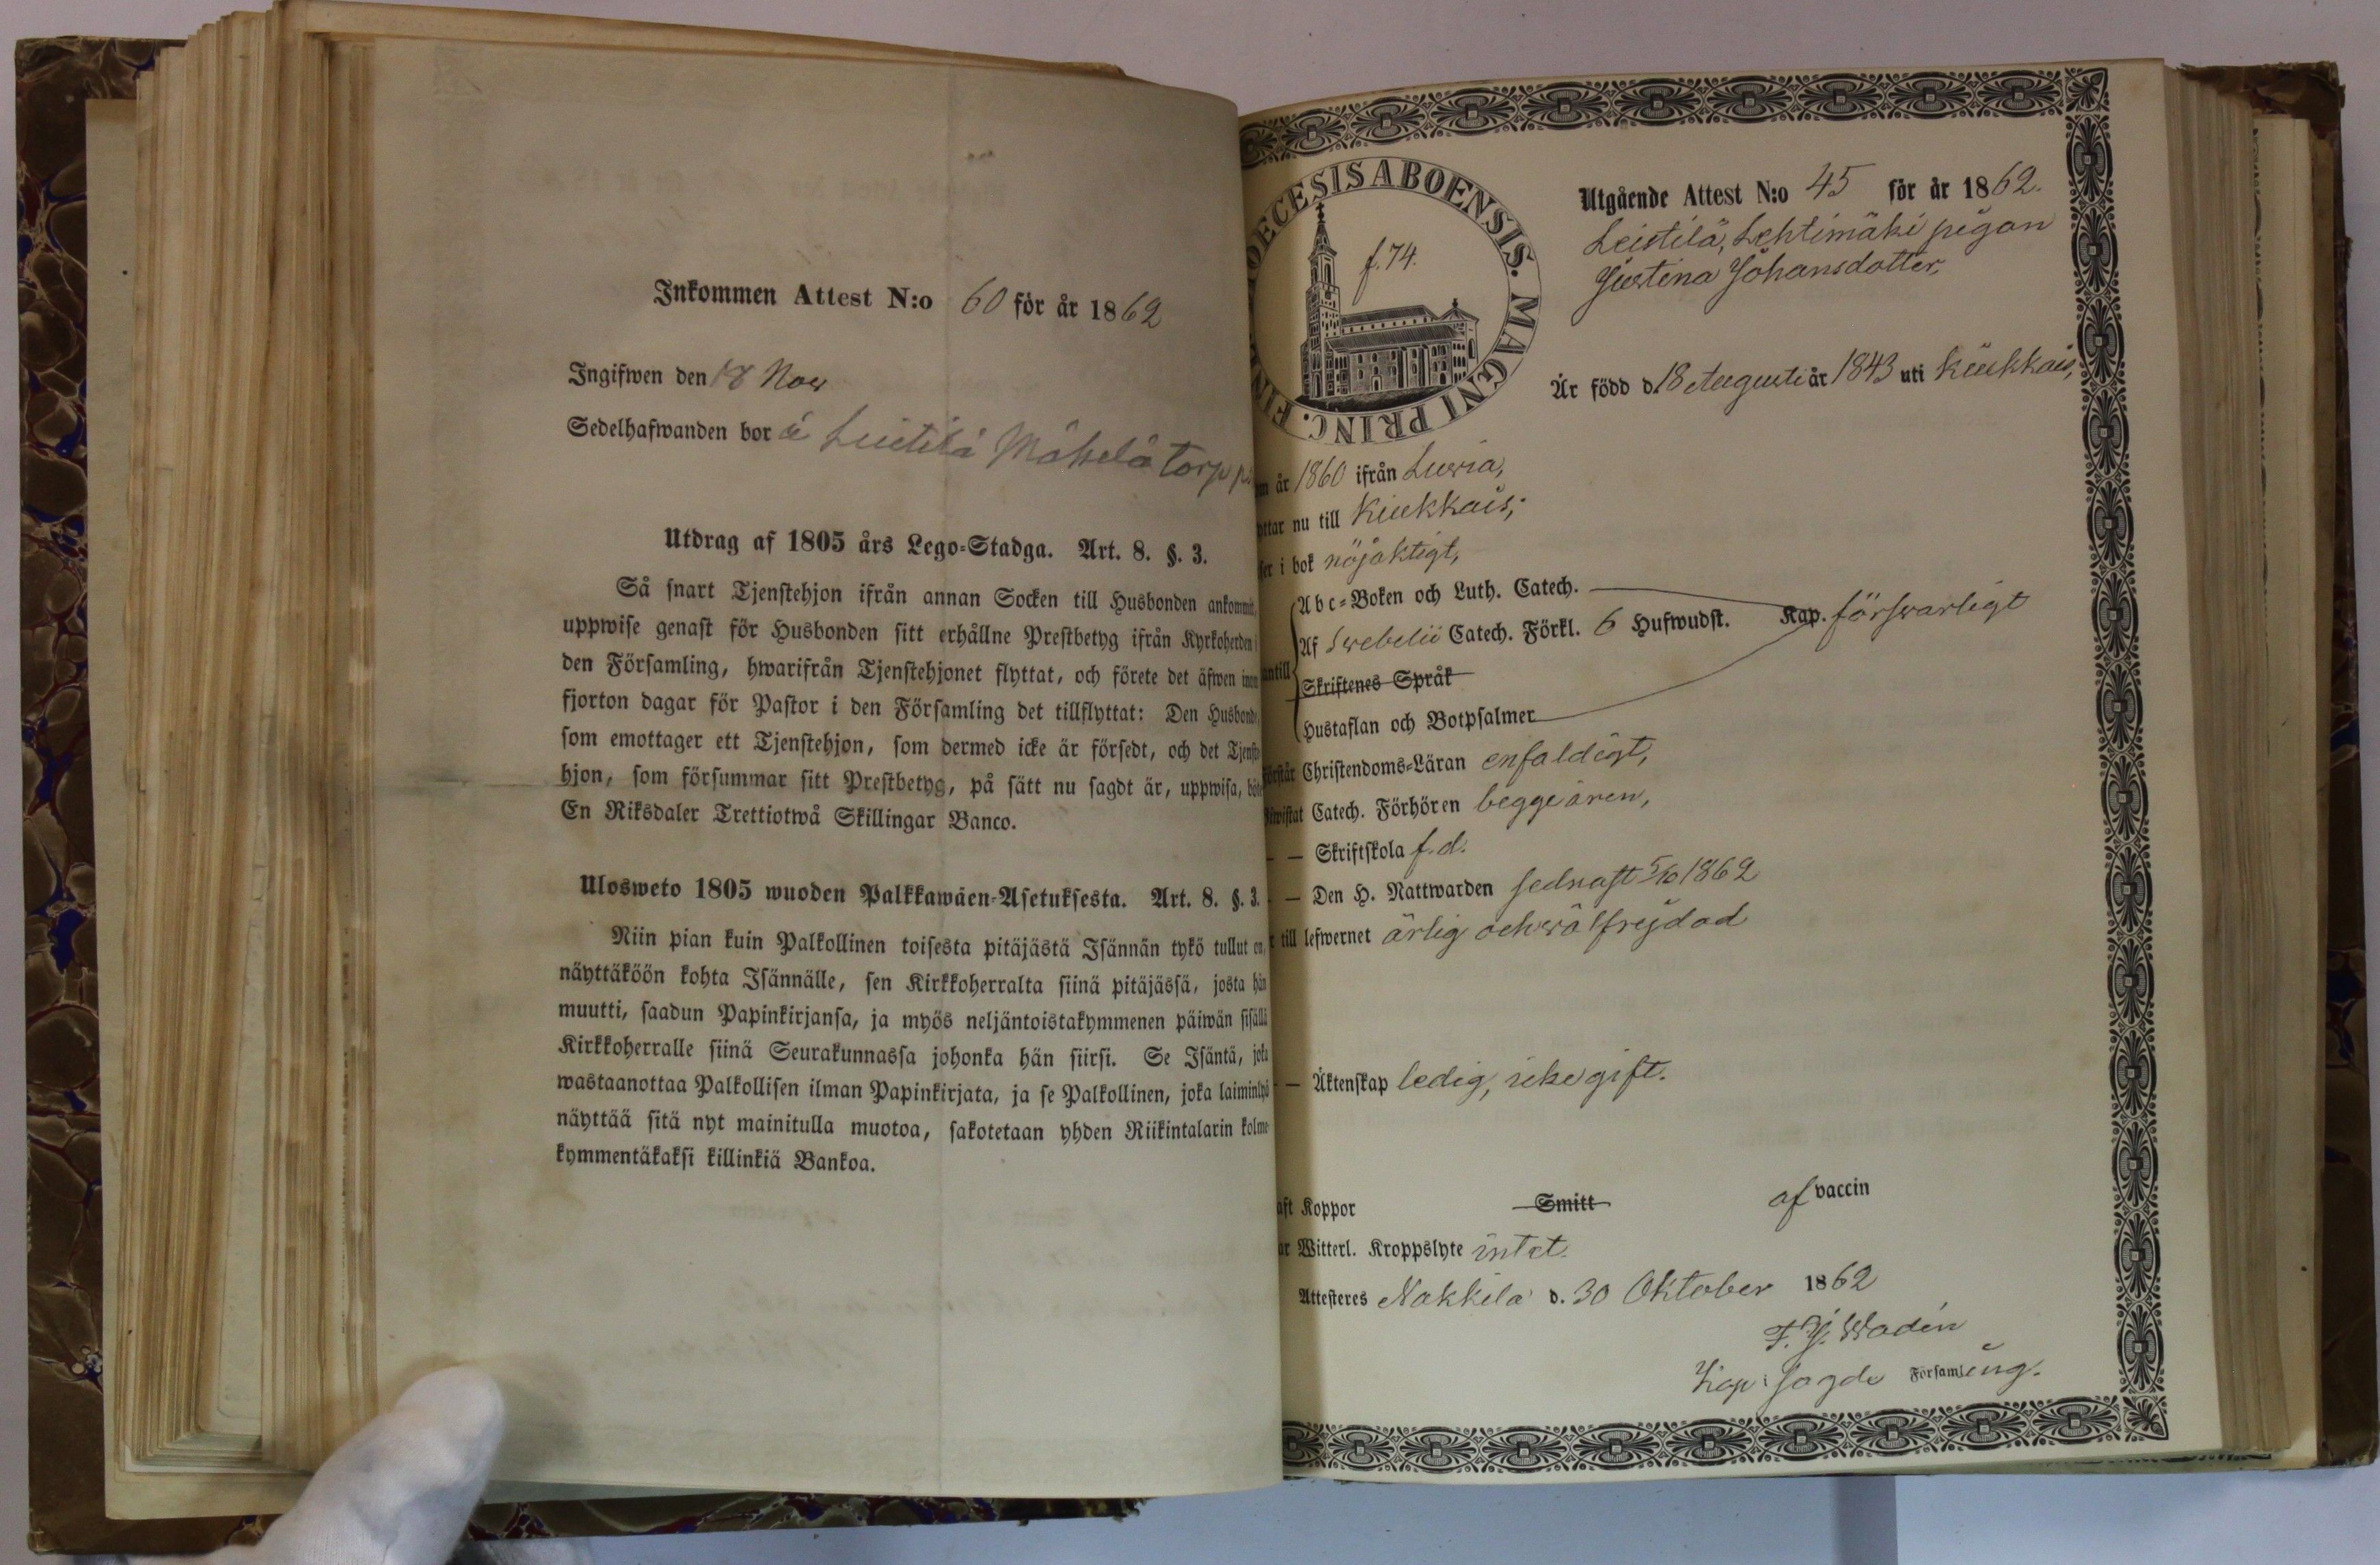 Inkommen Attest N:o 60 för år 1862
Ingifwen den 18 Nov
Sedelhafwanden bor å Leistilä Mäkelä torp
Utdrag af 1805 års Lego-Stadga. Art. 8. §. 3.
Så snart Tjenstehjon ifrån annan Socken till Husbonden ankommit,
uppwise genast för Husbonden sitt erhållne Prestbetyg ifrån Kyrkoherden i
den Församling, hwarifrån Tjenstehjonet flyttat, och förete det äfwen inom
fjorton dagar för Pastor i den Församling det tillflyttat: Den Husbonde,
som emottager ett Tjenstehjon, som dermed icke är försedt, och det Tjenste-
hjon, som försummar sitt Prestbetyg, på sätt nu sagdt är, uppwisa, böte
En Riksdaler Trettiotwå Skillingar Banco.
Ulosweto 1805 wuoden Palkkawäen-Asetuksesta. Art. 8. §. 3.
Niin pian kuin Palkollinen toisesta pitäjästä Isännän tykö tullut on,
näyttäköön kohta Isännälle, sen Kirkkoherralta siinä pitäjässä, josta hän
muutti, saadun Papinkirjansa, ja myös neljäntoistakymmenen päiwän sisällä
Kirkkoherralle siinä Seurakunnassa johonka hän siirsi. Se Isäntä, joka
wastaanottaa Palkollisen ilman Papinkirjata, ja se Palkollinen, joka laiminlyö
näyttää sitä nyt mainitulla muotoa, sakotetaan yhden Riikintalarin kolme-
kymmentäkaksi killinkiä Bankoa.
DECESIS ABOENSIS. MAGNI PRINC. FIN
f. 74.
Utgående Attest N:o 45 för år 1862.
Leistilä, Lehtimäki pigan
Justina Johansdotter,
Är född d. 18 Augusti år 1843 uti Kiukkais,
år 1860 ifrån Luvia,
ttar nu till Kiukkais;
i bok nöjaktigt,
Abc-Boken och Luth. Catech.
Af Svebelii Catech. Förkl. 6 Hufwudst. Kap. försvarligt
antill
Skriftenes Språk
Hustaflan och Botpsalmer
förstår Christendoms-Läran enfaldigt,
Catech. Förhören begge åren,
— — Skriftskola f. d.
— — Den H. Nattwarden sednast 5/10 1862
till lefwernet ärlig och välfrejdad
— — Äktenskap ledig, icke gift.
aft Koppor Smitt af vaccin
ar Witterl. Kroppslyte intet.
Attesteres Nakkila d. 30 Oktober 1862
F. J. Wadén
Kap. i sagde Församling.